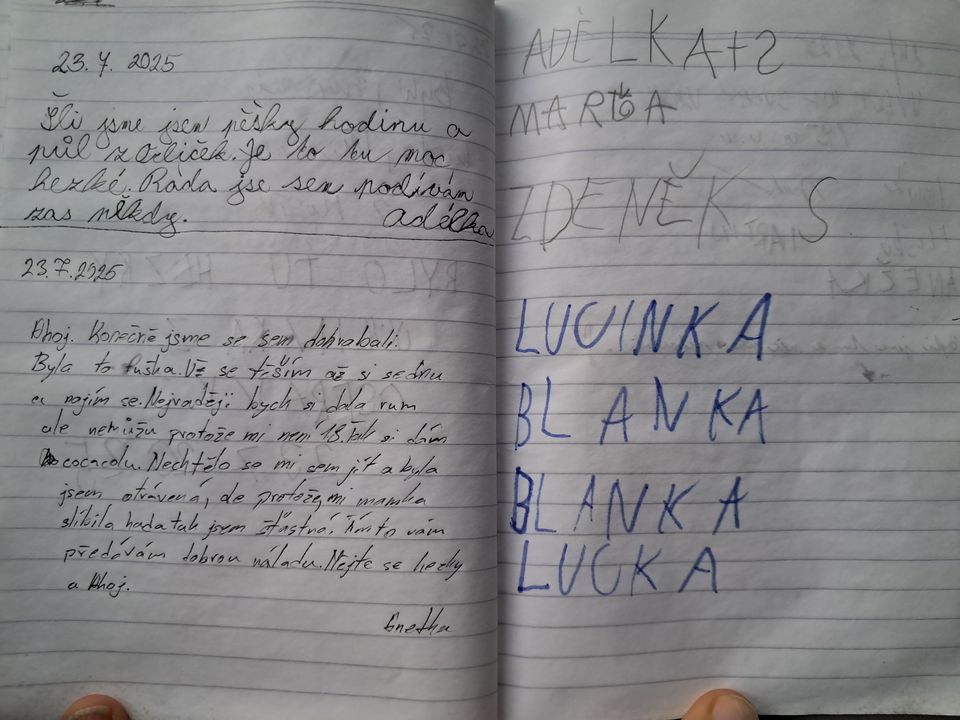 23. 7. 2025
Šli jsme jsen pěšky hodinu a
půl z Orliček. Je to tu moc
hezké. Ráda jse sem podívám
zas někdy. adélka
23.7.2025
Ahoj. Konečně jsme se sem dohrabali.
Byla to fuška. Už se těším až si sednu
a najím se. Nejraději bych si dala rum
ale nemůžu protože mi není 18. Tak si dám
cocacolu. Nechtělo se mi sem jít a byla
jsem otrávená, ale protože mi mamka
slíbila hada tak jsem šťastná. Tímto vám
předávám dobrou náladu. Mějte se hezky
a Ahoj.
ADÉLKA
MARŤA
ZDENĚK S
LUCINKA
BLANKA
BLANKA
LUCKA